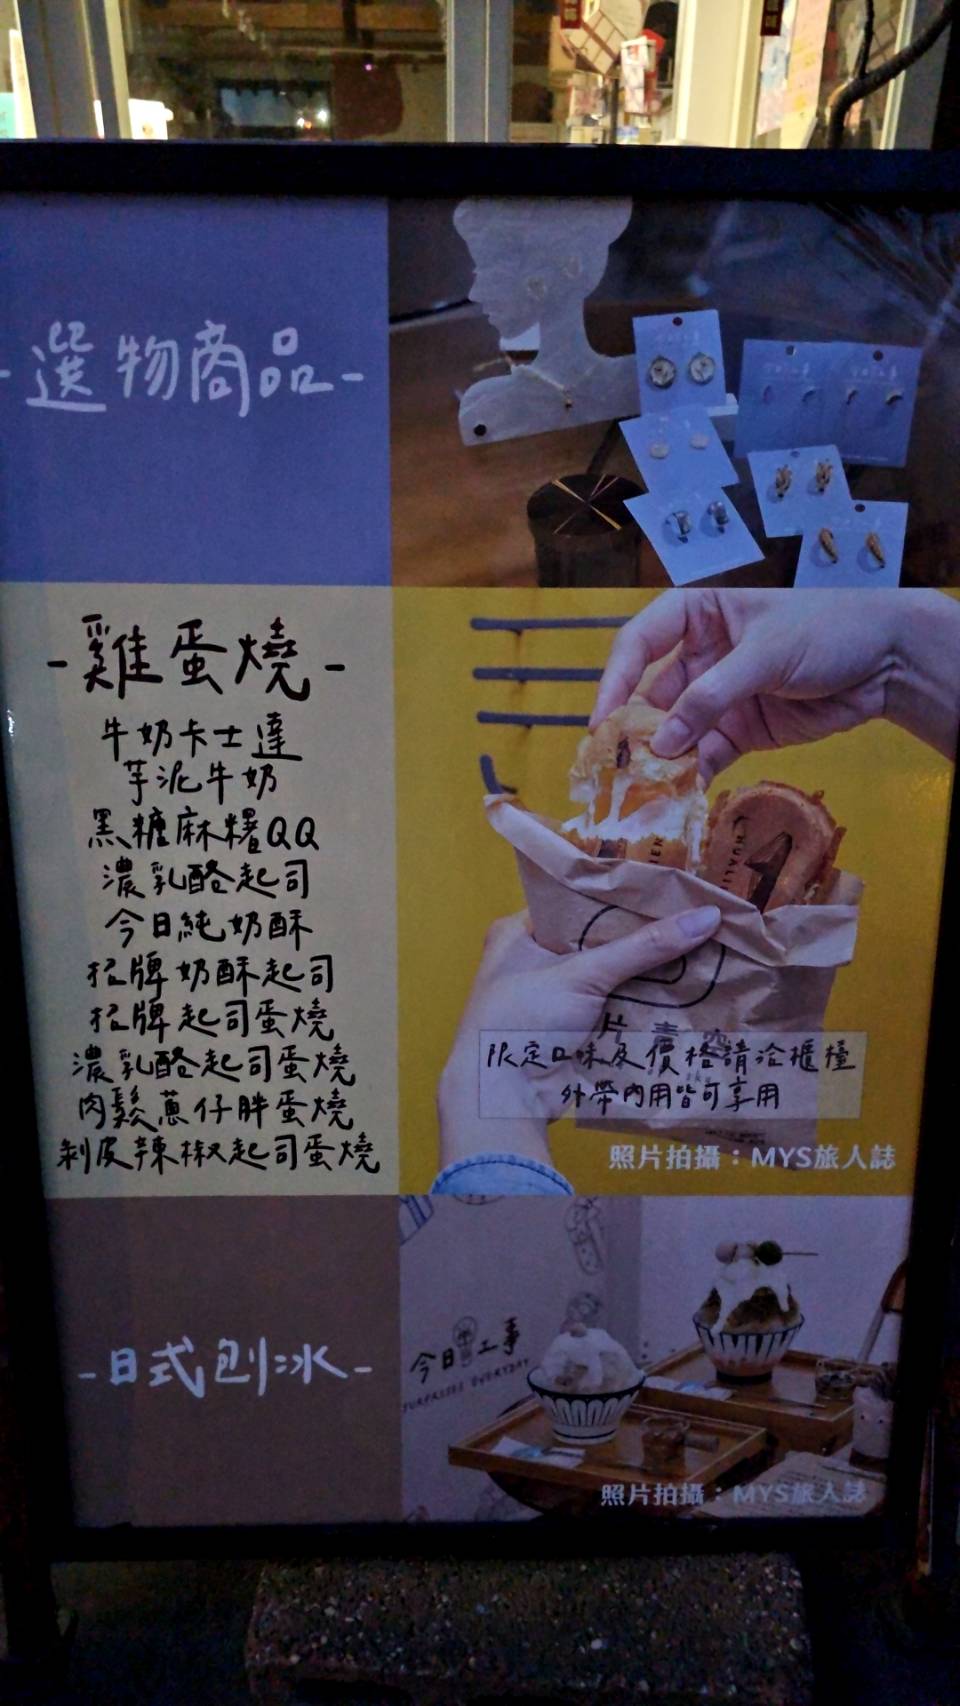 -選物商品-
-雞蛋燒-
牛奶卡士達
芋泥牛奶
黑糖麻糬QQ
濃乳酪起司
今日純奶酥
招牌奶酥起司
招牌起司蛋燒
濃乳酪起司蛋燒
肉鬆蔥仔胖蛋燒
剝皮辣椒起司蛋燒
限定口味及價格請洽櫃檯
外帶內用皆可享用
照片拍攝：MYS旅人誌
-日式刨冰-
今日工事
SURPRISES EVERYDAY
照片拍攝：MYS旅人誌